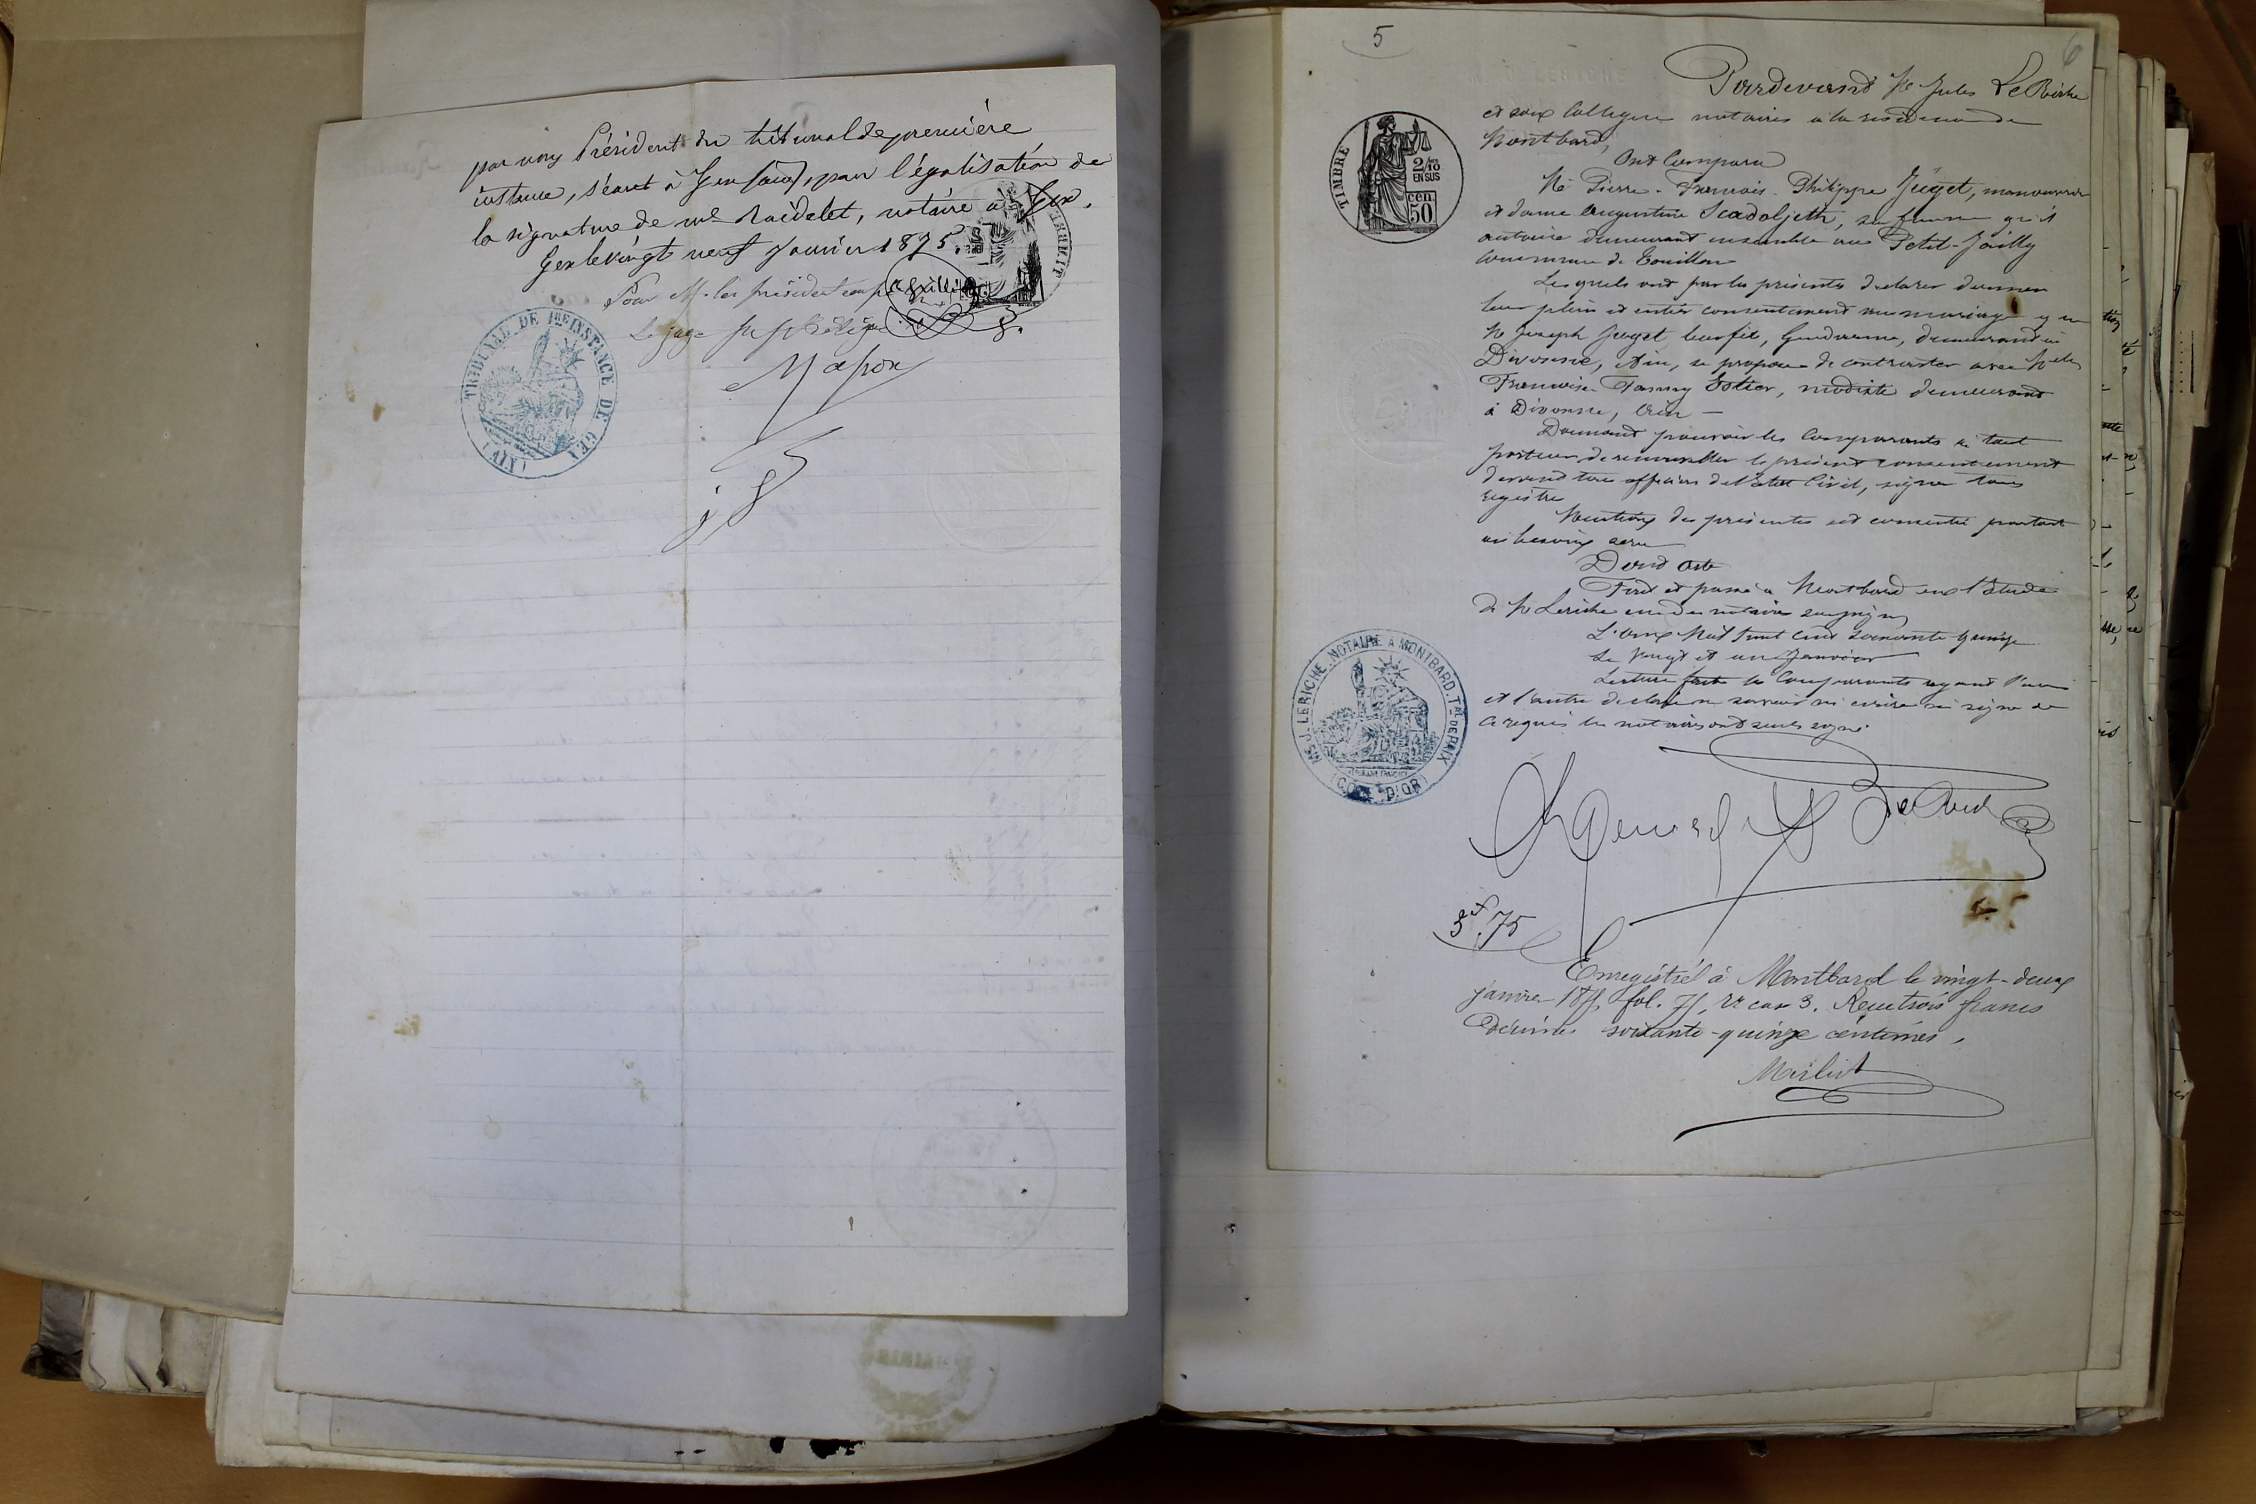 par nous Président du tribunal de première
instance, séant à Gex (ain), pour légalisation de
la signature de me Roidelet, notaire à Gex.
Gex le vingt neuf Janvier 1875.
Pour M. les président
Le juge
TRIBUNAL DE 1ère INSTANCE DE GEX
(AIN)
5
6
Pardevant Me Jules LeRiche
et son Collègue notaires à la résidence de
Montbard,
Ont Comparu
TIMBRE
2/10
EN SUS
50
cen.
Mr Pierre-Francois-Philippe Juget, manouvrier
et dame Augustine, sa femme qu'il
autorise demeurant ensemble au Petit-Jailly
Commune de Touillon
Lesquels ont par les présentes déclaré donner
leur plein et entier consentement au mariage que
Mr Joseph Juget leur fils, Gendarme, demeurant à
Divonne, Ain, se propose de contracter avec Melle
Francoise Fanny Estier, modiste demeurant
à Divonne, Ain —
Donnant pouvoir les Comparants à tout
porteur de renouveller le présent consentement
devant tous officiers de l'état Civil, signer tous
registres
Mention des présentes est consentie partout
où besoin sera
Dont Acte
Fait et passé à Montbard en l'Etude
de Me Leriche un des notaires soussignés
L'an Mil huit cent soixante quinze
Le vingt et un Janvier
Lecture faite les Comparants ayant l'un
et l'autre déclaré ne savoir ni écrire ni signer de
ce requis les notaires ont seuls signé.
Me J. LERICHE, NOTAIRE A MONTBARD.
(COTE D'OR)
3f.75
Enregistré à Montbard le vingt-deux
janvier 1875, fol. 75, Vo cas 3. Reçu trois francs
Décimes soixante-quinze centimes.